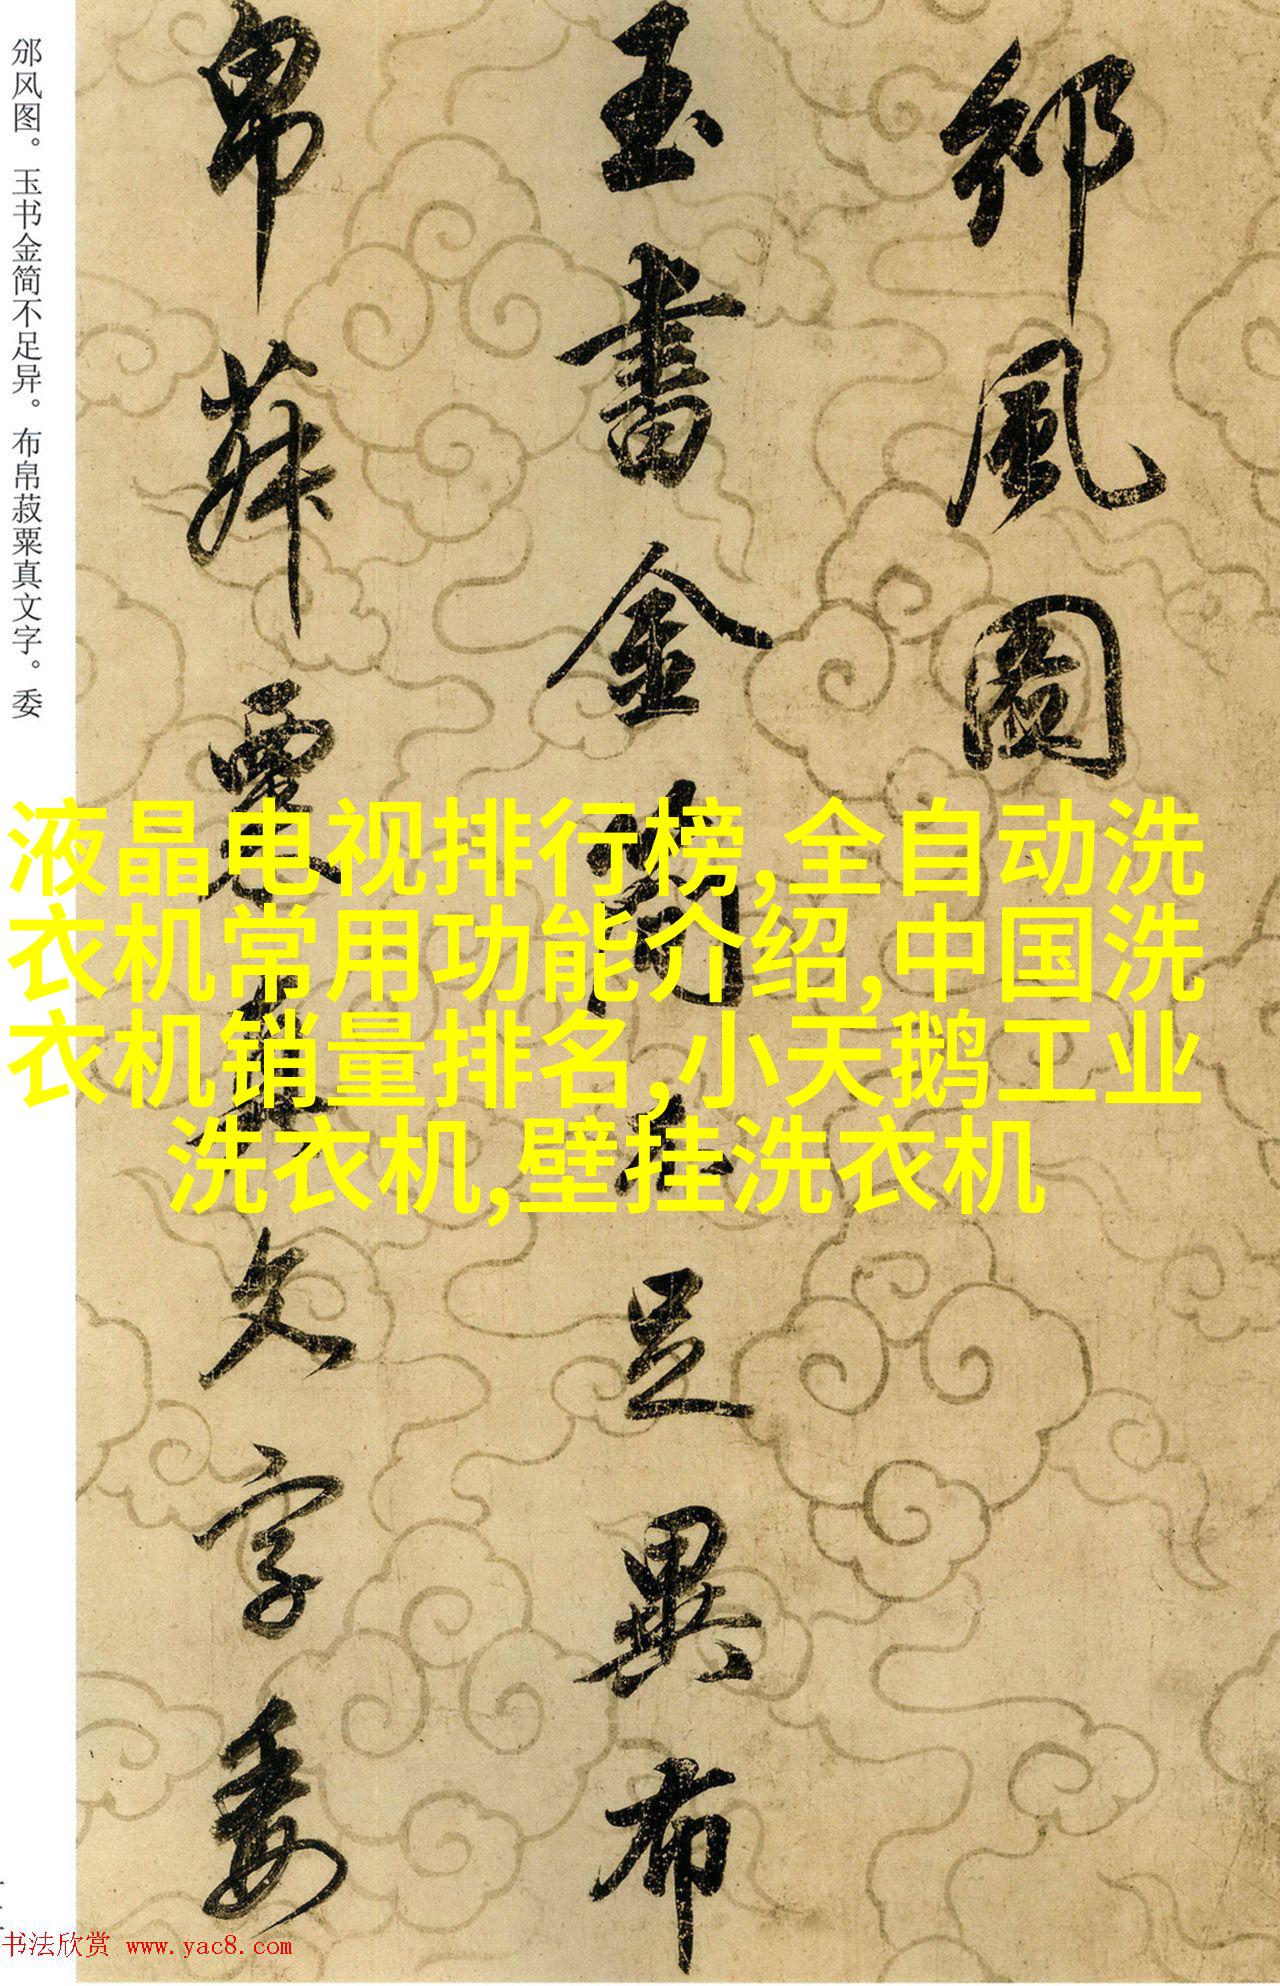 邠風圖
玉書金簡不足異布
帛菽粟真文字委
邠风图。玉书金简不足异。布帛菽粟真文字。委
液晶电视排行榜,全自动洗
衣机常用功能介绍,中国洗
衣机销量排名,小天鹅工业
洗衣机,壁挂洗衣机
书法欣赏 www.yac8.com